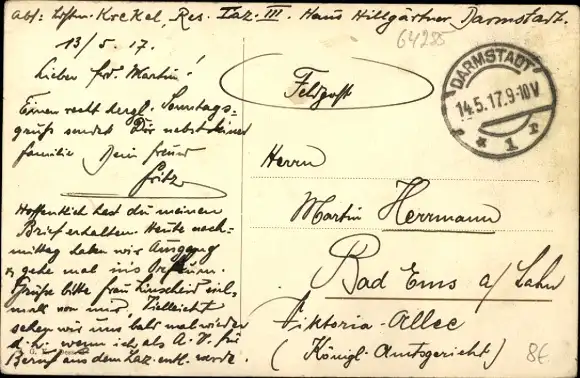 Abs: Krekel, Res. Laz. III. Haus Hillgärtner Darmstadt.
13/5. 17.
64285
Lieber frd. Martin!
Einen recht herzl. Sonntags-
gruß sendet Dir nebst deiner
Familie Dein freund
Fritz
Hoffentlich hast du meinen
Brief erhalten. Heute nach-
mittag haben wir Ausgang
u. gehe mal ins Orfeum.
Grüße bitte frau viel-
mals von mir, Vielleicht
sehen wir uns bald mal wieder
d. h. wenn ich als A. V. für
Beruf aus dem Laz. entl. werde
Feldpost
DARMSTADT
14.5.17.9-10V
* 1 r
Herrn
Martin Herrmann
Bad Ems a/Lahn
Viktoria-Allee
(Königl. Amtsgericht)
8E